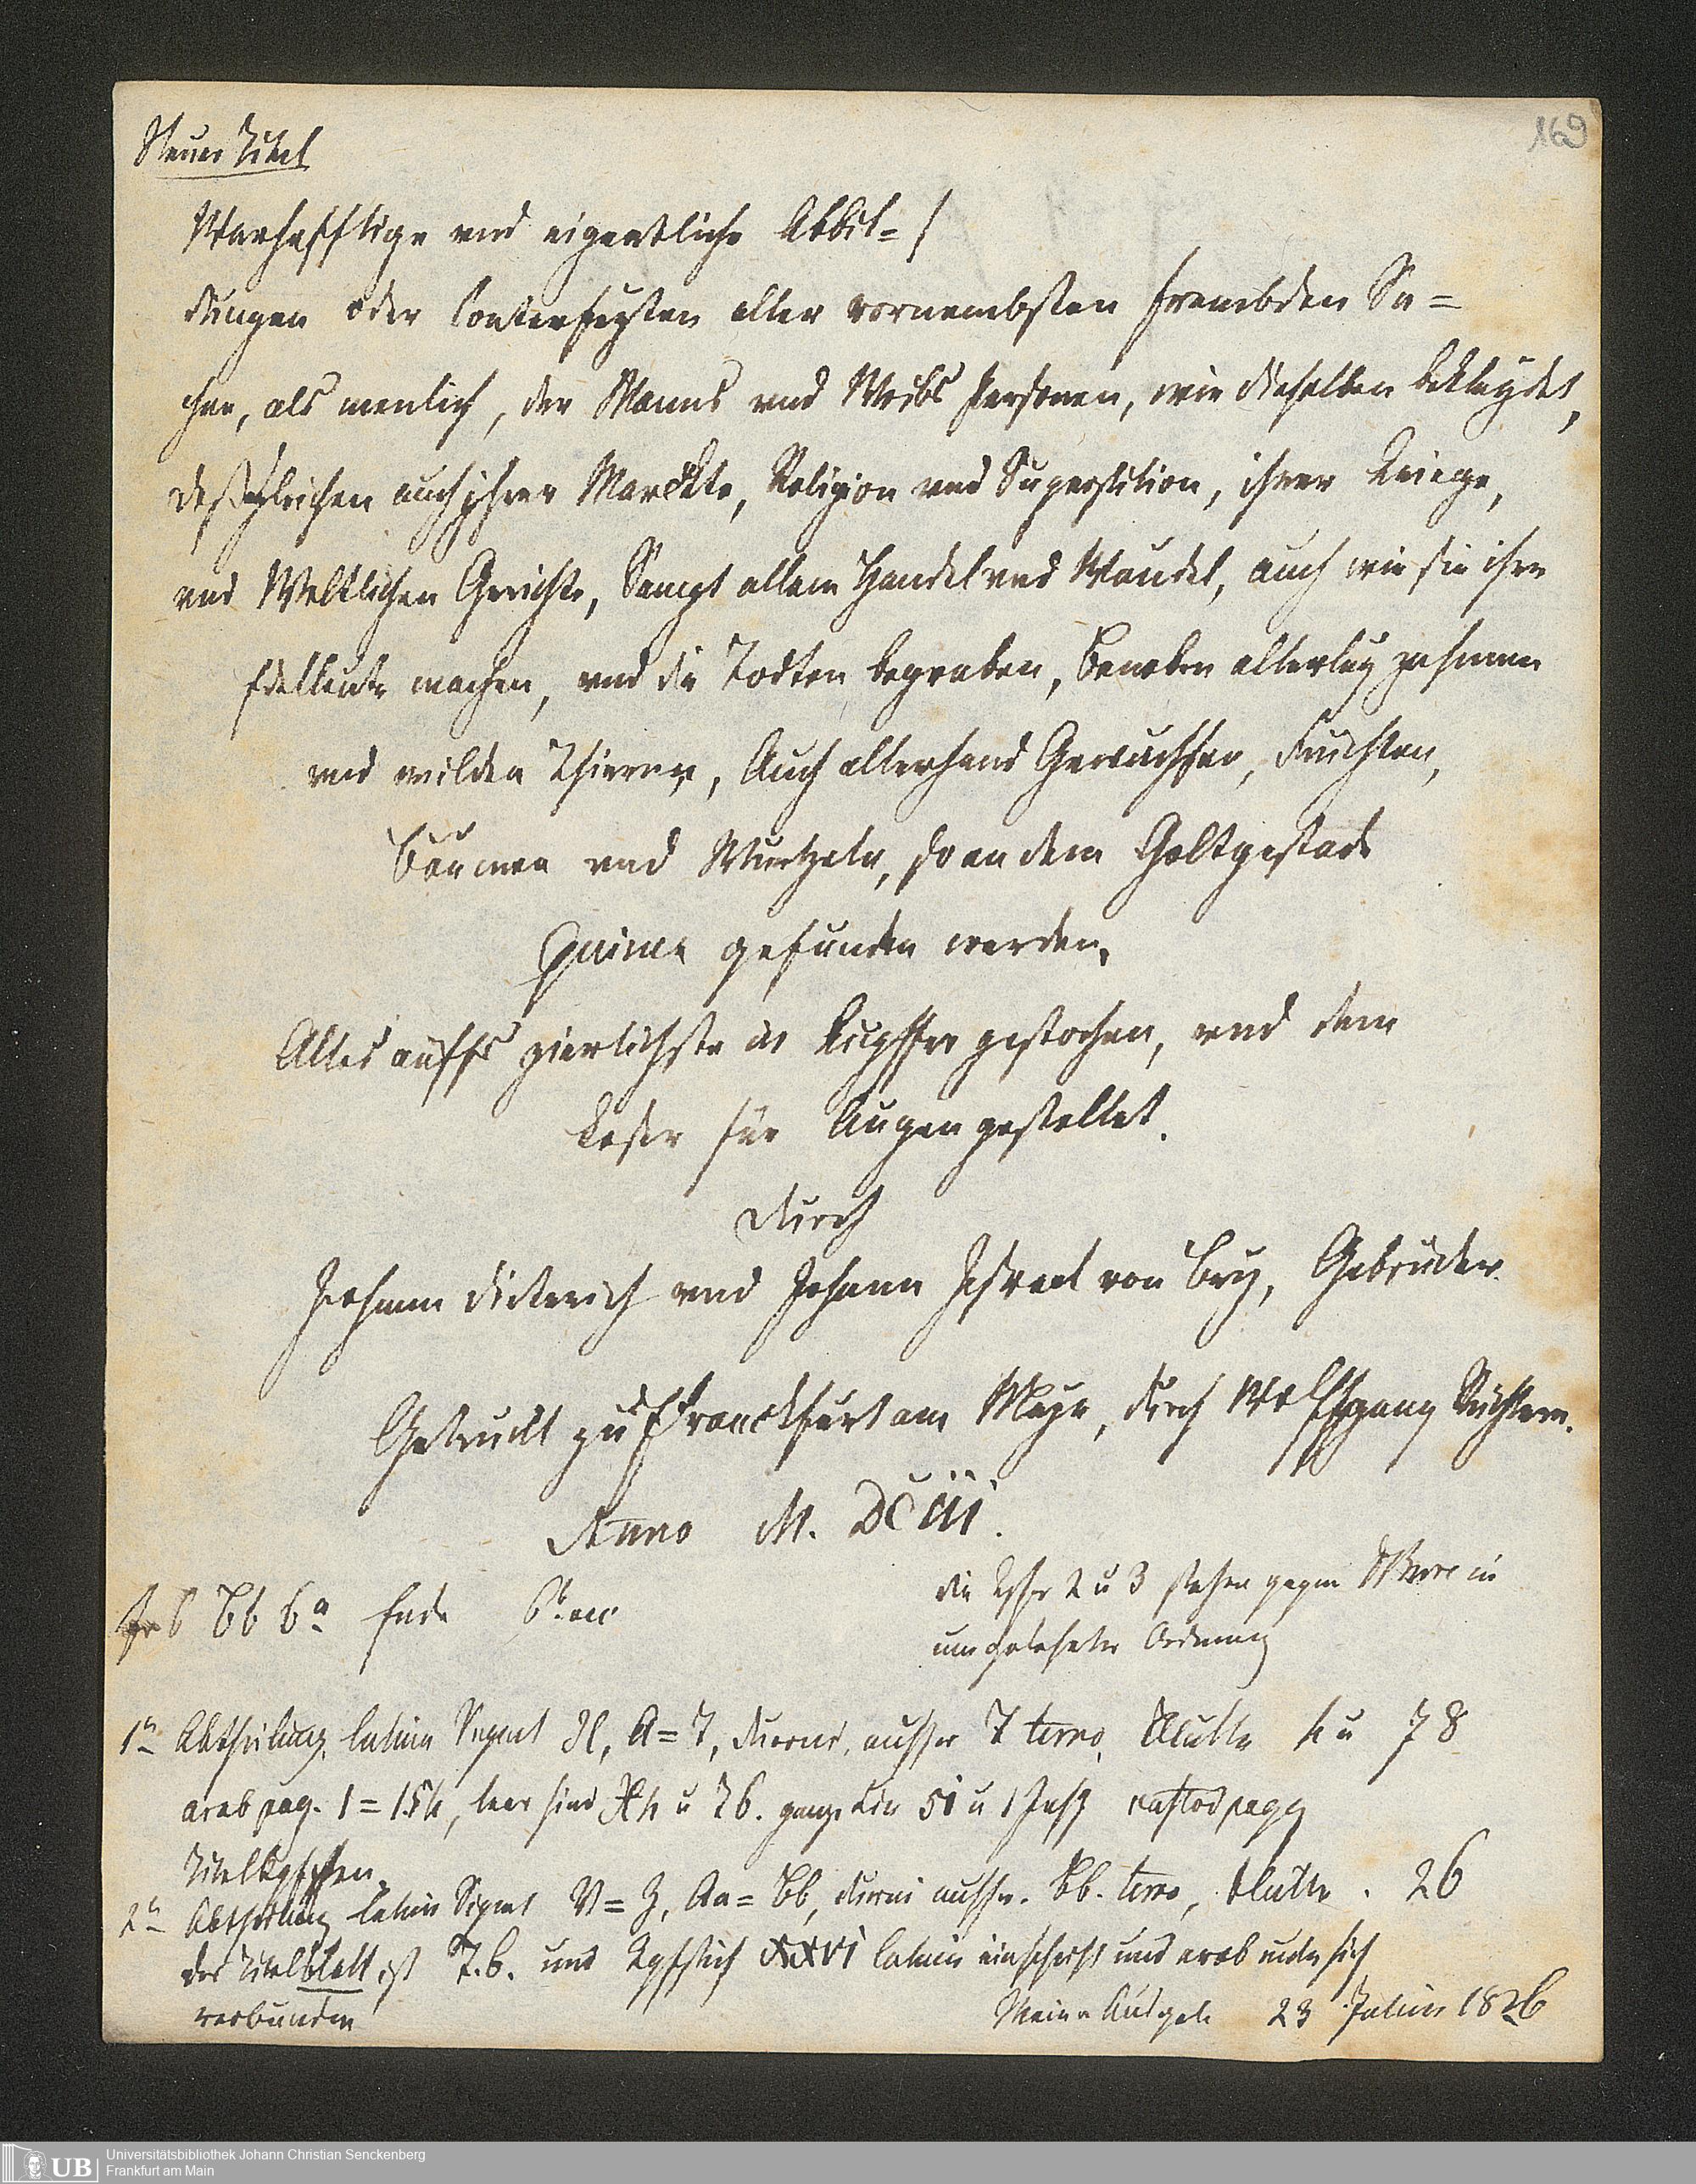 169
Neuer Titel
Warhafftige vnd eigentliche Abbil=/
dungen oder Conterfeyten aller vornembsten frembden Sa=
chen, als nemlich, der Manns vnd Weibs Personen, wie dieselben bekleydet,
deßgleichen auch jhrer Märckte, Religion vnd Superstition, ihrer Kriege,
vnd Weltlichen Gerichte, Sampt allem Handel vnd Wandel, auch wie sie ihre
Edelleute machen, vnd die Todten begraben, Beneben allerley zahmen
vnd wilden Thieren, Auch allerhand Gewächsen, Früchten,
Bäumen vnd Wurtzeln, so an dem Goltgestade
Guinea gefunden werden.
Alles auffs zierlichste in Kupffer gestochen, vnd dem
Leser für Augen gestellet.
Durch
Johann Dieterich vnd Johann Israel von Bry, Gebrüder.
Getruckt zu Franckfurt am Mayn, durch Wolffgang Richtern.
Anno M. DCiii.
Bb 6a Ende
die Kpfr 2 u 3 stehen gegen in
umgekehrter Ordnung
1e Abtheilung latein Signat A=T, duerni, ausser T terno, Blätter 78
arab pag. 1=154, leer sind u T6.
Titelkpfr
2e Abtheilung latein Signat V=Z, Aa=Bb, duerni ausser Bb. terno, Blätter. 26
das Titelblatt ist T.6. und Kpfstich XXVI latein einschrift und arab unter sich
verbunden
Meine Ausgabe 23 Julius 1826
UB
Universitätsbibliothek Johann Christian Senckenberg
Frankfurt am Main